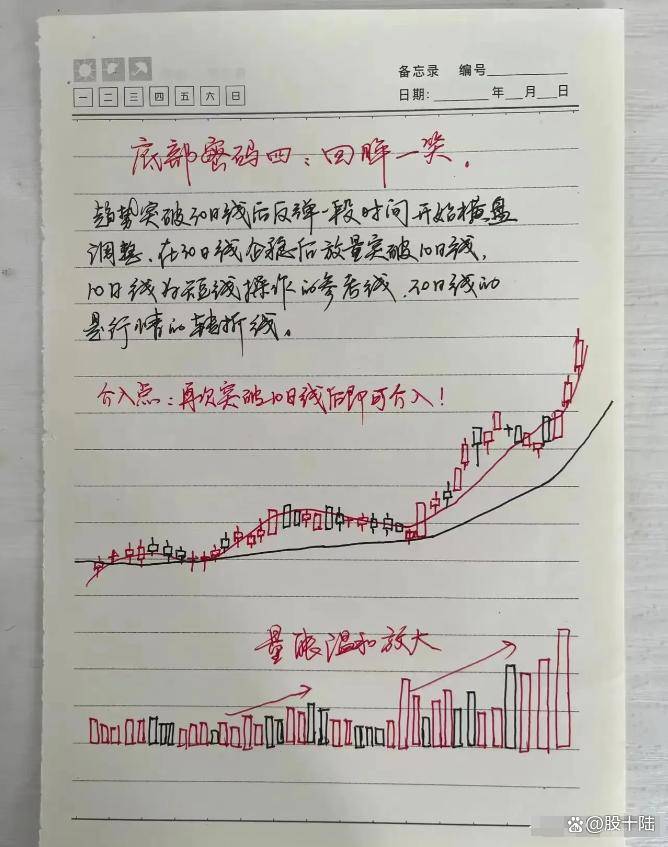 备忘录 编号
一 二 三 四 五 六 日
日期: 年 月 日
底部密码四:回眸一笑.
趋势突破30日线后反弹一段时间开始横盘
调整.在30日线企稳后放量突破10日线,
10日线为短线操作的参考线.30日线的
是行情的转折线.
介入点:再次突破10日线后即可介入!
量能温和放大
@股十陆